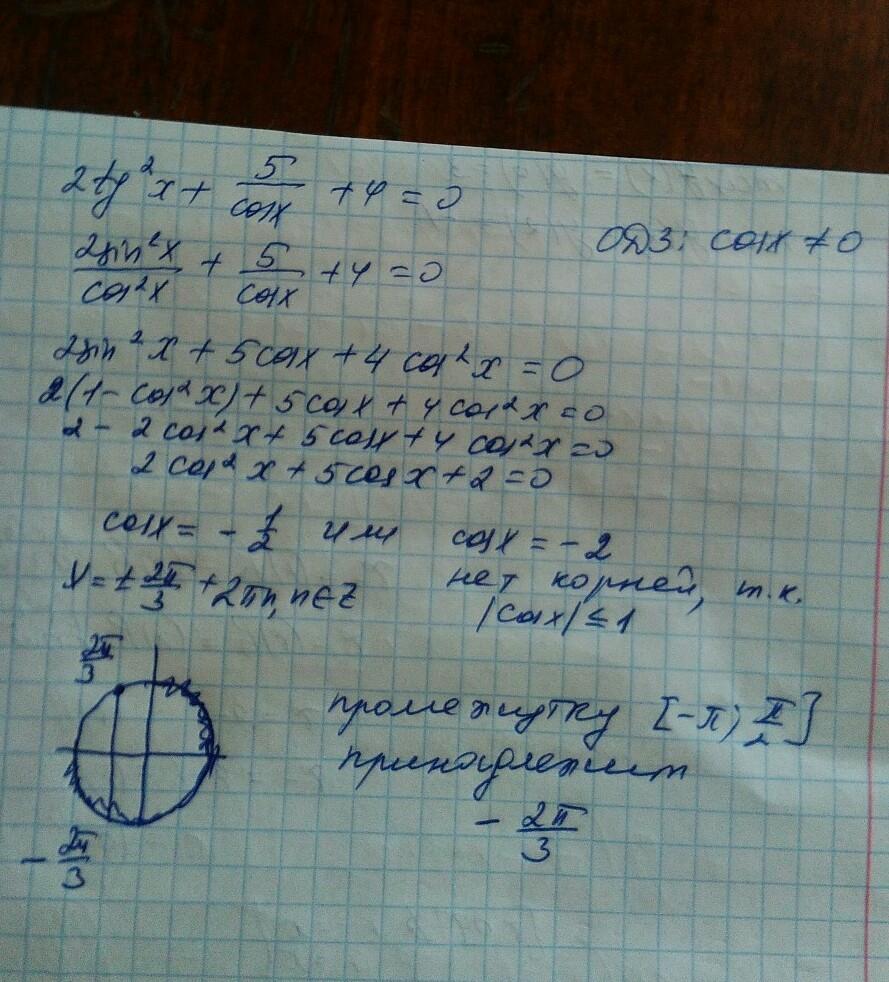 2tg²x + 5/cosx + 4 = 0
ОДЗ: cosx ≠ 0
2sin²x/cos²x + 5/cosx + 4 = 0
2sin²x + 5cosx + 4cos²x = 0
2(1 - cos²x) + 5cosx + 4cos²x = 0
2 - 2cos²x + 5cosx + 4cos²x = 0
2cos²x + 5cosx + 2 = 0
cosx = - 1/2 или cosx = - 2
x = ± 2π/3 + 2πn, n∈Z нет корней, т.к.
|cosx| ≤ 1
2π/3
промежутку [-π; π/2]
принадлежит
- 2π/3
- 2π/3